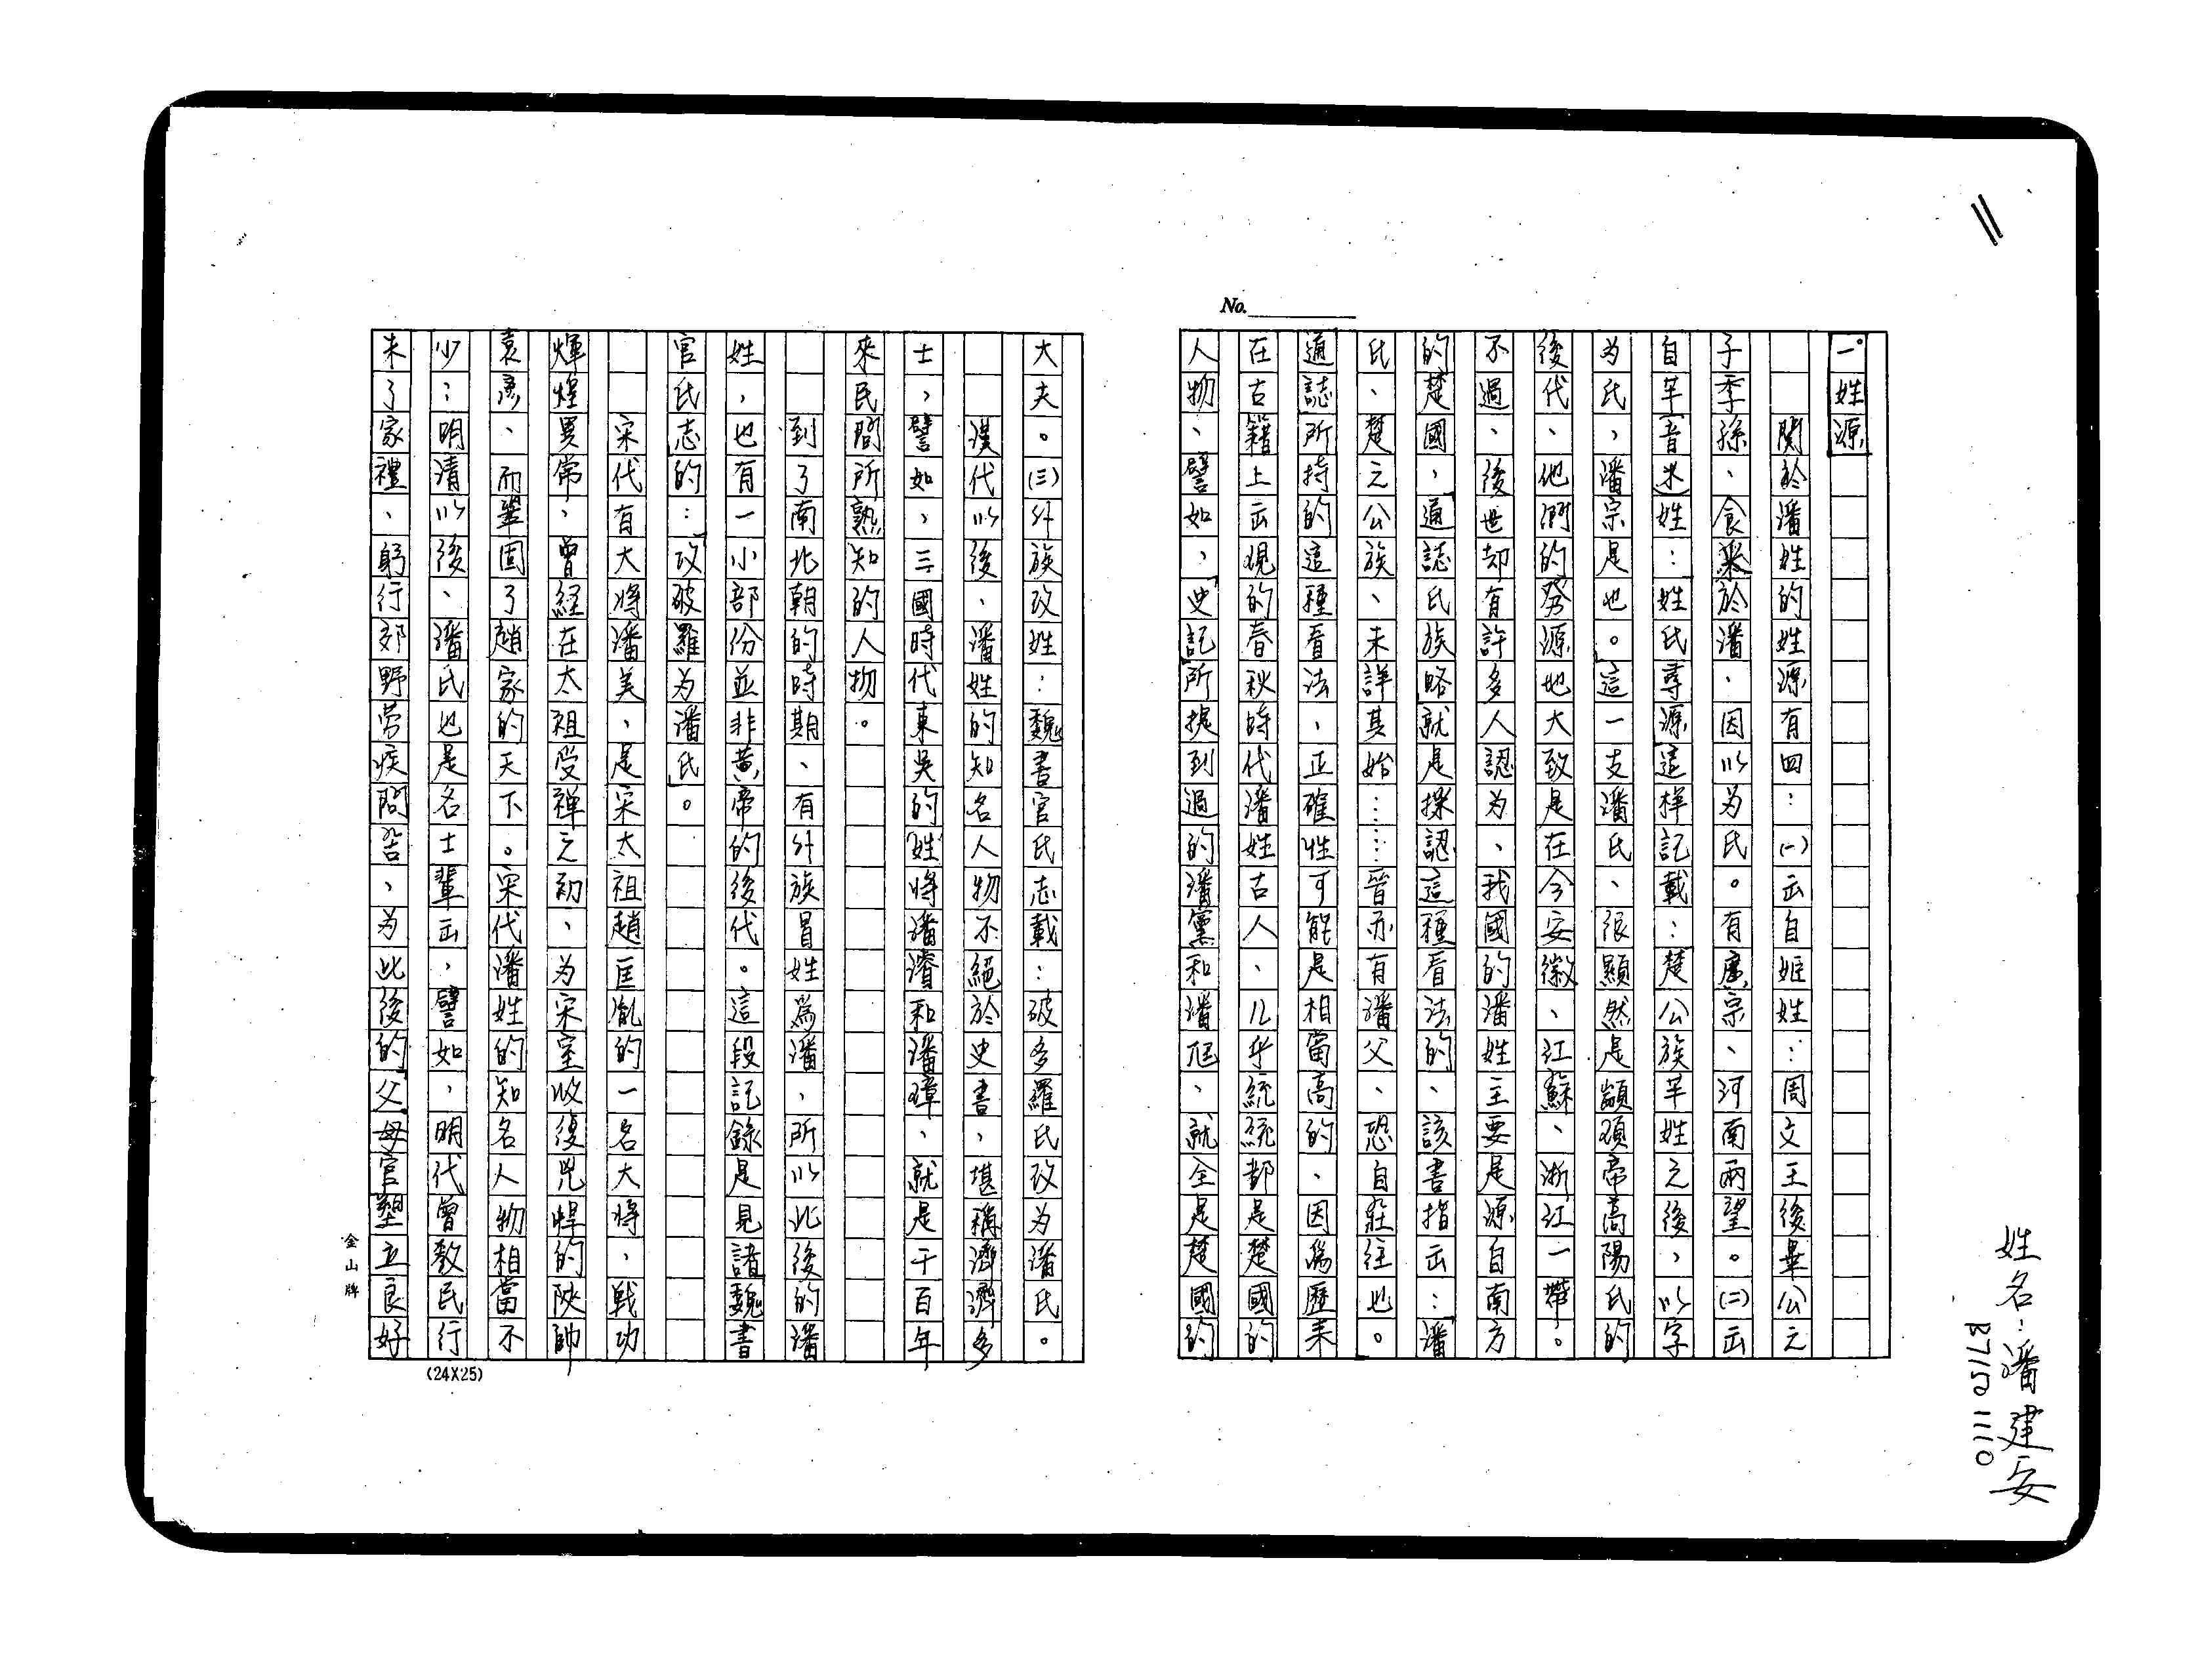 姓名：潘建安
B71521110
No.
一。姓源
關於潘姓的姓源有四：(一)出自姬姓：周文王後畢公之
子季孫、食采於潘、因以为氏。有廣宗、河南兩望。(二)出
自芊音米姓：「姓氏尋源」這樣記載：楚公族芊姓之後，以字
为氏，潘宗是也。這一支潘氏、很顯然是顓頊帝高陽氏的
後代、他們的發源地大致是在今安徽、江蘇、浙江一帶。
不過、後世却有許多人認为、我國的潘姓主要是源自南方
的楚國，「通誌氏族略」就是採認這種看法的、該書指出：「潘
氏、楚之公族、未詳其始……晉亦有潘父、恐自楚往也。
通誌所持的這種看法、正確性可能是相當高的、因為歷来
在古籍上出現的春秋時代潘姓古人、几乎統統都是楚國的
人物、譬如，「史記」所提到過的潘黨和潘尫、就全是楚國的
大夫。(三)外族改姓：魏書官氏志載：破多羅氏改为潘氏。
漢代以後、潘姓的知名人物不絕於史書，堪稱濟濟多
士，譬如，三國時代東吳的姓將潘濬和潘璋、就是千百年
來民間所熟知的人物。
到了南北朝的時期、有外族冒姓為潘，所以此後的潘
姓，也有一小部份並非黃帝的後代。這段記錄是見諸魏書
官氏志的：「改破羅为潘氏」。
宋代有大將潘美、是宋太祖趙匡胤的一名大將、戰功
輝煌異常，曾経在太祖受禅之初、为宋室收復兇悍的陝帥
袁彥、而鞏固了趙家的天下。宋代潘姓的知名人物相當不
少：明清以後、潘氏也是名士輩出，譬如，明代曾教民行
朱了家禮、躬行郊野勞疾問苦、为此後的「父母官」塑立良好
金山牌
(24X25)